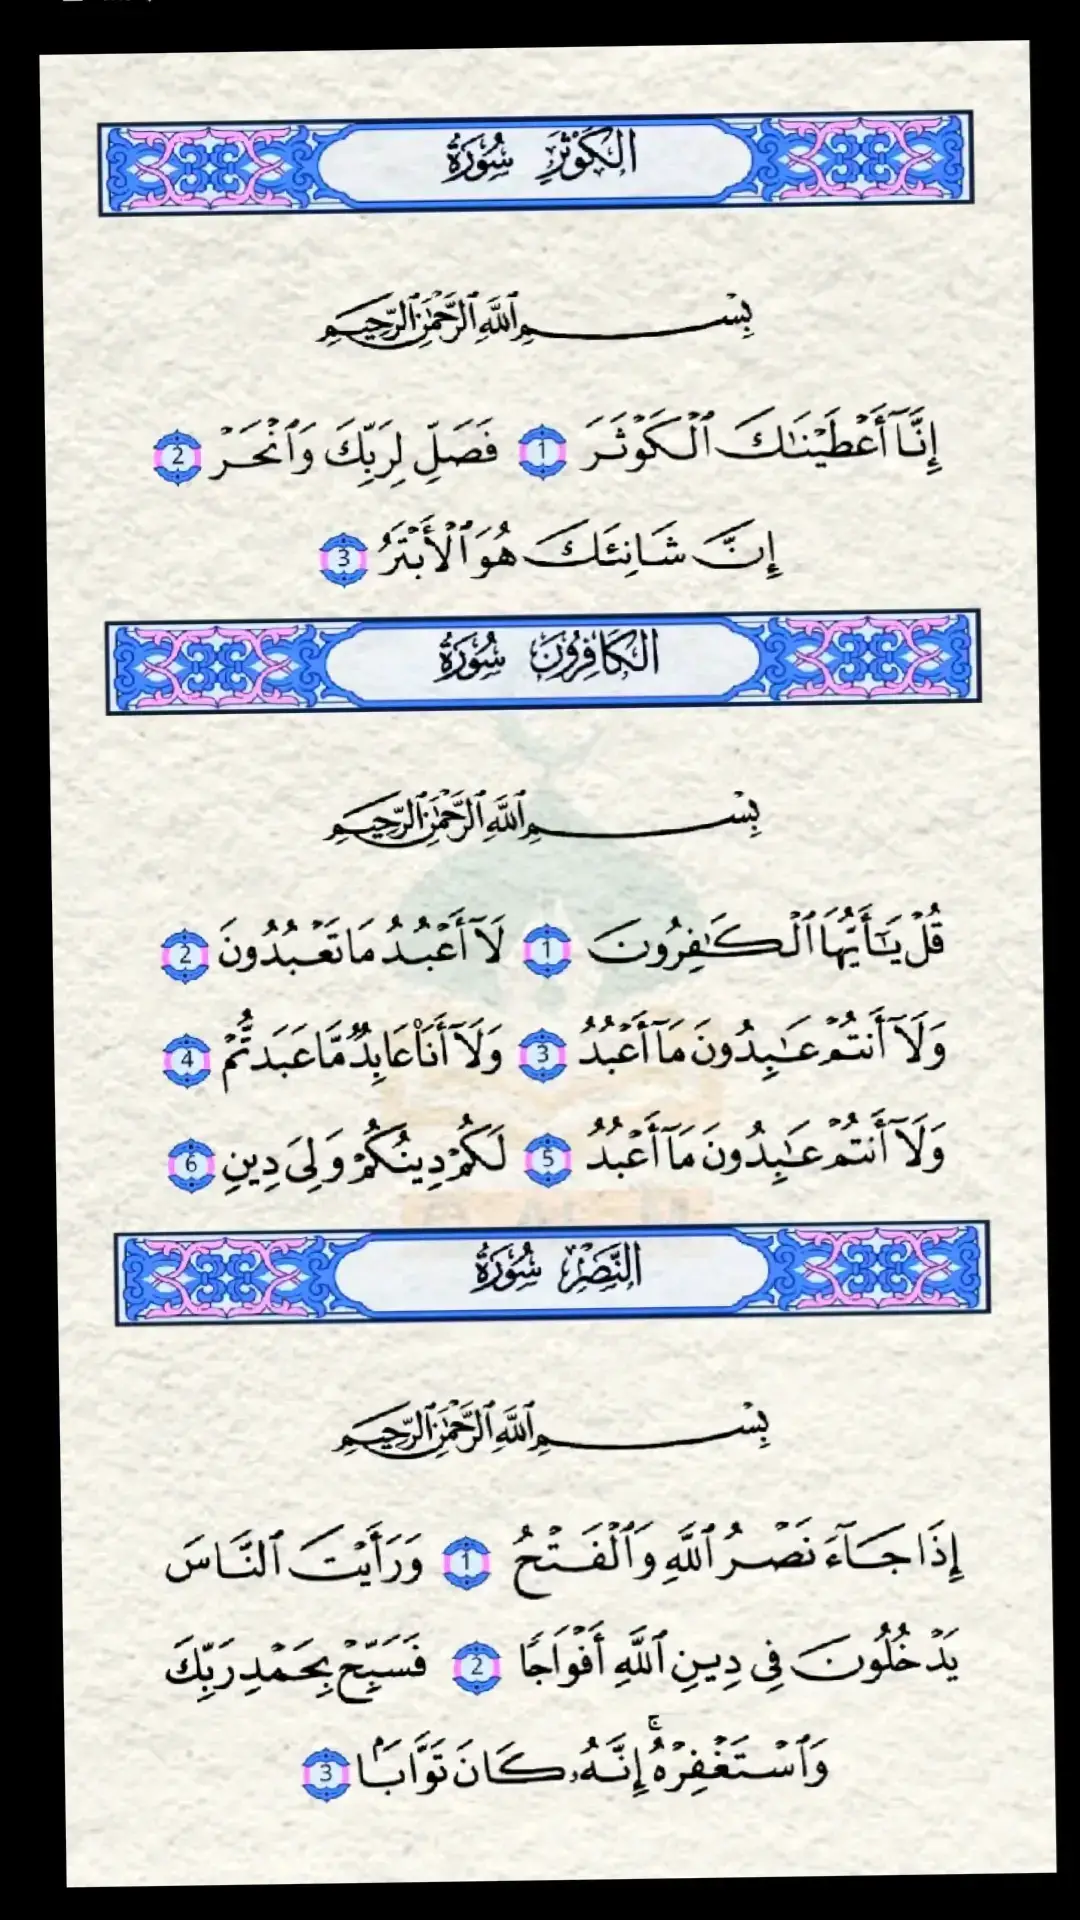 الكَوْثَرِ سُورَةُ
بِسْمِ ٱللَّهِ ٱلرَّحْمَٰنِ ٱلرَّحِيمِ
إِنَّآ أَعْطَيْنَٰكَ ٱلْكَوْثَرَ 1 فَصَلِّ لِرَبِّكَ وَٱنْحَرْ 2
إِنَّ شَانِئَكَ هُوَ ٱلْأَبْتَرُ 3
الكَافِرُونَ سُورَةُ
بِسْمِ ٱللَّهِ ٱلرَّحْمَٰنِ ٱلرَّحِيمِ
قُلْ يَٰٓأَيُّهَا ٱلْكَٰفِرُونَ 1 لَآ أَعْبُدُ مَا تَعْبُدُونَ 2
وَلَآ أَنتُمْ عَٰبِدُونَ مَآ أَعْبُدُ 3 وَلَآ أَنَا۠ عَابِدٌ مَّا عَبَدتُّمْ 4
وَلَآ أَنتُمْ عَٰبِدُونَ مَآ أَعْبُدُ 5 لَكُمْ دِينُكُمْ وَلِىَ دِينِ 6
النَّصْرِ سُورَةُ
بِسْمِ ٱللَّهِ ٱلرَّحْمَٰنِ ٱلرَّحِيمِ
إِذَا جَآءَ نَصْرُ ٱللَّهِ وَٱلْفَتْحُ 1 وَرَأَيْتَ ٱلنَّاسَ
يَدْخُلُونَ فِى دِينِ ٱللَّهِ أَفْوَاجًا 2 فَسَبِّحْ بِحَمْدِ رَبِّكَ
وَٱسْتَغْفِرْهُ ۚ إِنَّهُۥ كَانَ تَوَّابَۢا 3